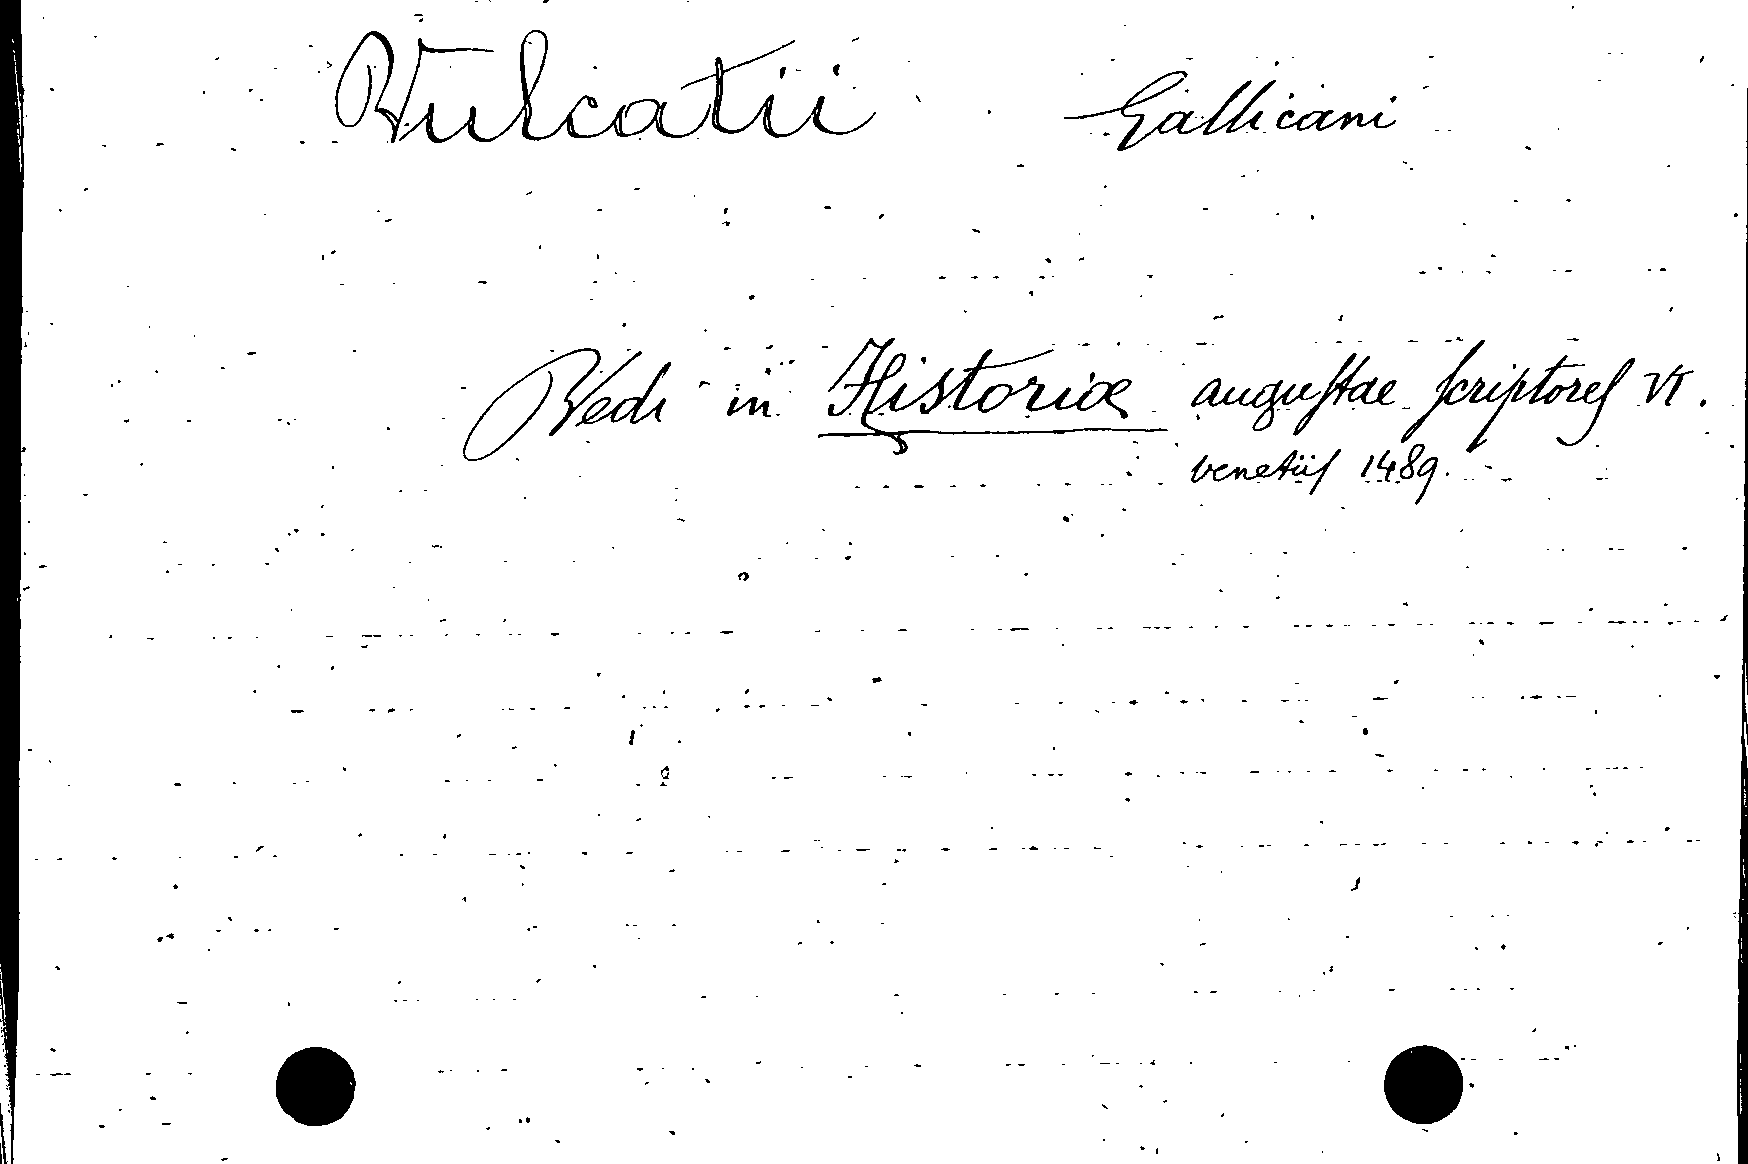 Vulcatii Gallicani
Vedi in Historiæ auguſtae ſcriptoreſ VI.
venetiiſ 1489.